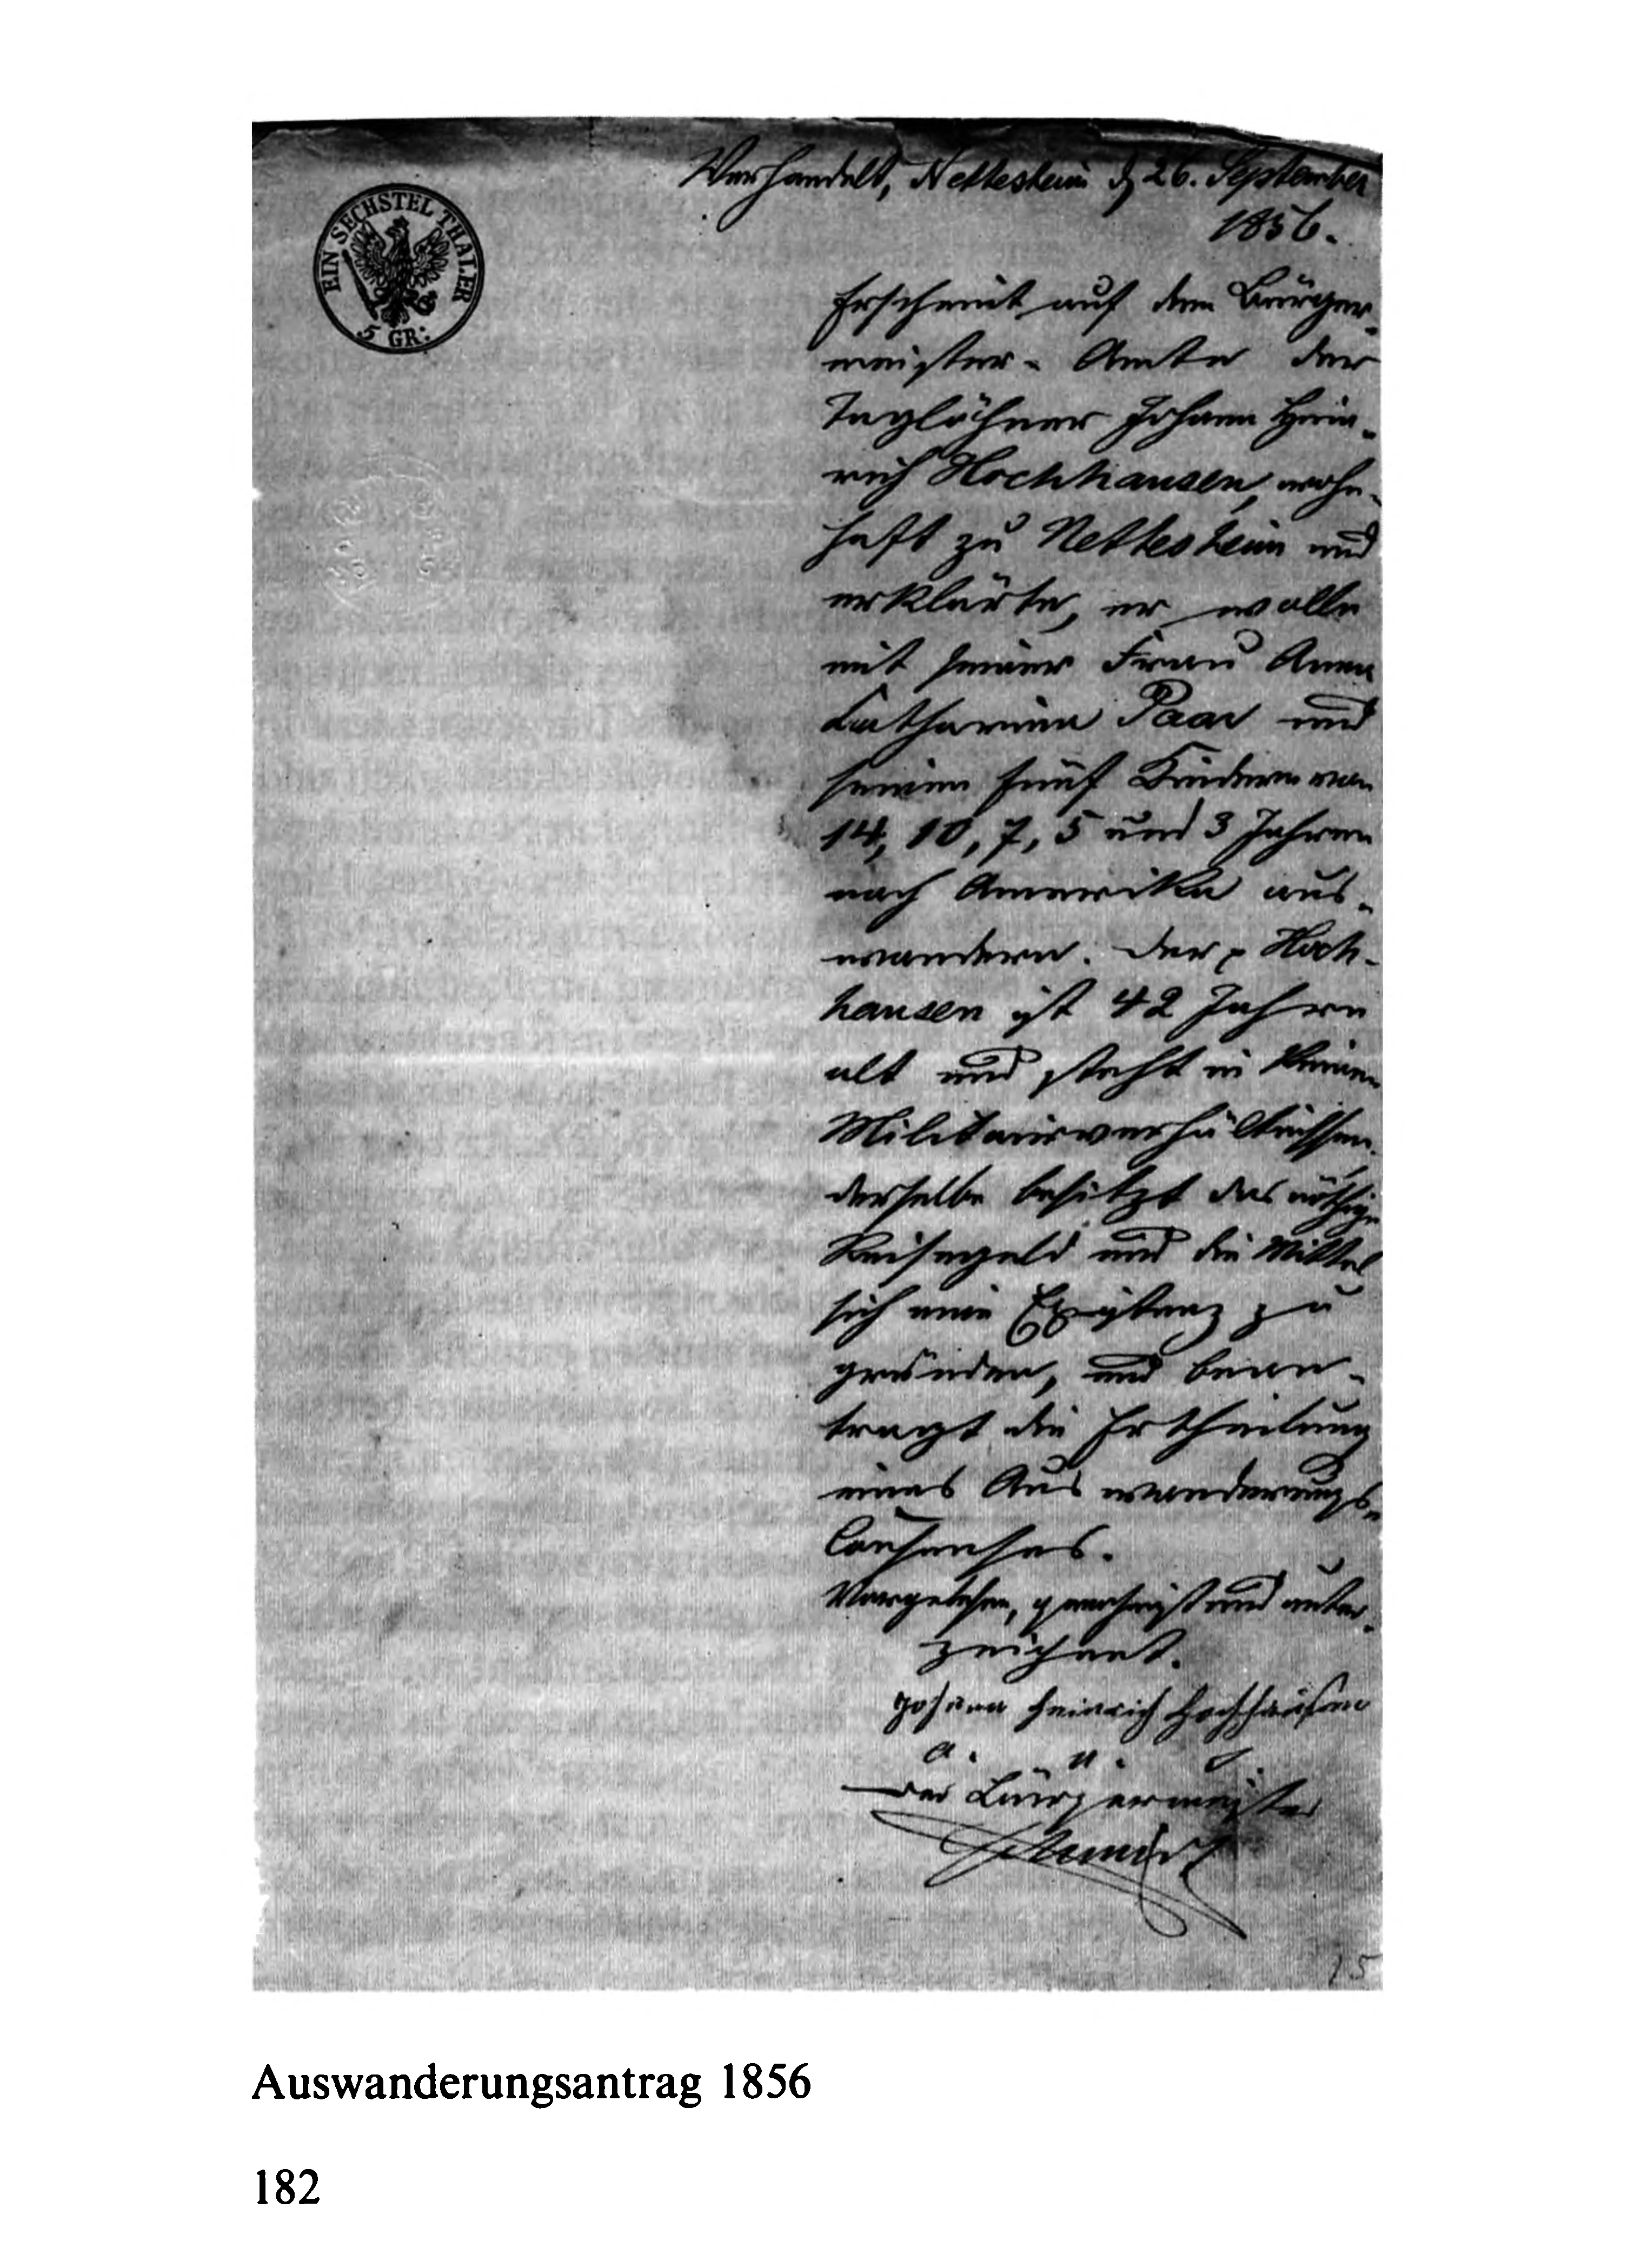 Verhandelt, Nettesheim d 26. September
1856.
EIN SECHSTEL THALER
5 GR:
Erscheint auf dem Bürger-
meister-Amte der
Taglöhner Johann Hein-
rich Hochhausen, wohn-
haft zu Nettesheim und
erklärte, er wolle
mit seiner Frau Anna
Catharina Paar und
seinen fünf Kindern von
14, 10, 7, 5 und 3 Jahren
nach Amerika aus-
wandern. Der Hoch-
hausen ist 42 Jahre
alt und steht in keinen
Militairverhältnissen.
Derselbe besitzt das nöthige
Reisegeld und die Mittel
sich eine Existenz zu
gründen, und bean-
tragt die Ertheilung
eines Auswanderungs-
Consenses.
Vorgelesen, genehmigt und unter-
zeichnet.
Johann Heinrich Hochhausen
a. u. s
Der Bürgermeister
15
Auswanderungsantrag 1856
182